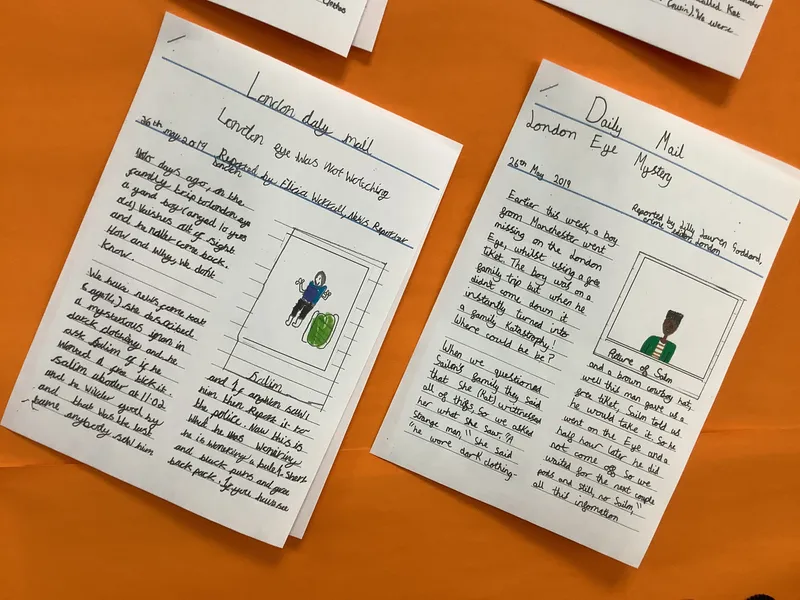 Clothes
called Kat
Cousin). We were
London daly mail
London eye Was Not Watching
26th may 2019
Reported by Elicia Wetkrall, News Reportier
London
days ago, on the
family trip to london eye
a yand boy (anyad 10 years
old) Vanishes out of sight
and he nallt come back.
How and Why, We don't
know.
We have news, come kat
(again) she described
a mysterious man in
darck clothing and he
ask Salim if if he
wonted a free tickit.
Salim aborder at 11:02
and he Wilder good by
and that was the last
tame anybody sawl him
Salim
and if anyown sawl
him then Report it to
the police. Now this is
Wack he was Wenering
he is wenering a bulet-short
and black parts and gren
back pack. If you have see
Daily Mail
London Eye Mystery
26th May 2019
Reported by Lilly Lauren Goddard,
crime London
Earlier this week a boy
from Manchester went
missing on the London
Eye, whilst using a free
tiket. The boy was on a
family trip but when he
didn't come down it
instantly turned into
a family Katastrophy!
Where could be be?
When we questioned
Sailm's family they said
that she (Kat) witnessed
all of things. So we asked
her what she saw. "A
strange man" She said
"he wore dark clothing-
Picture of Sailm
and a brown cowboy hat,
well this man gave us a
free tiket, Sailm told us
he would take it. So he
went on the Eye and a
half hour later he did
not come off. So we
waited for the next couple
pods and still, no Sailm,"
all this infomation